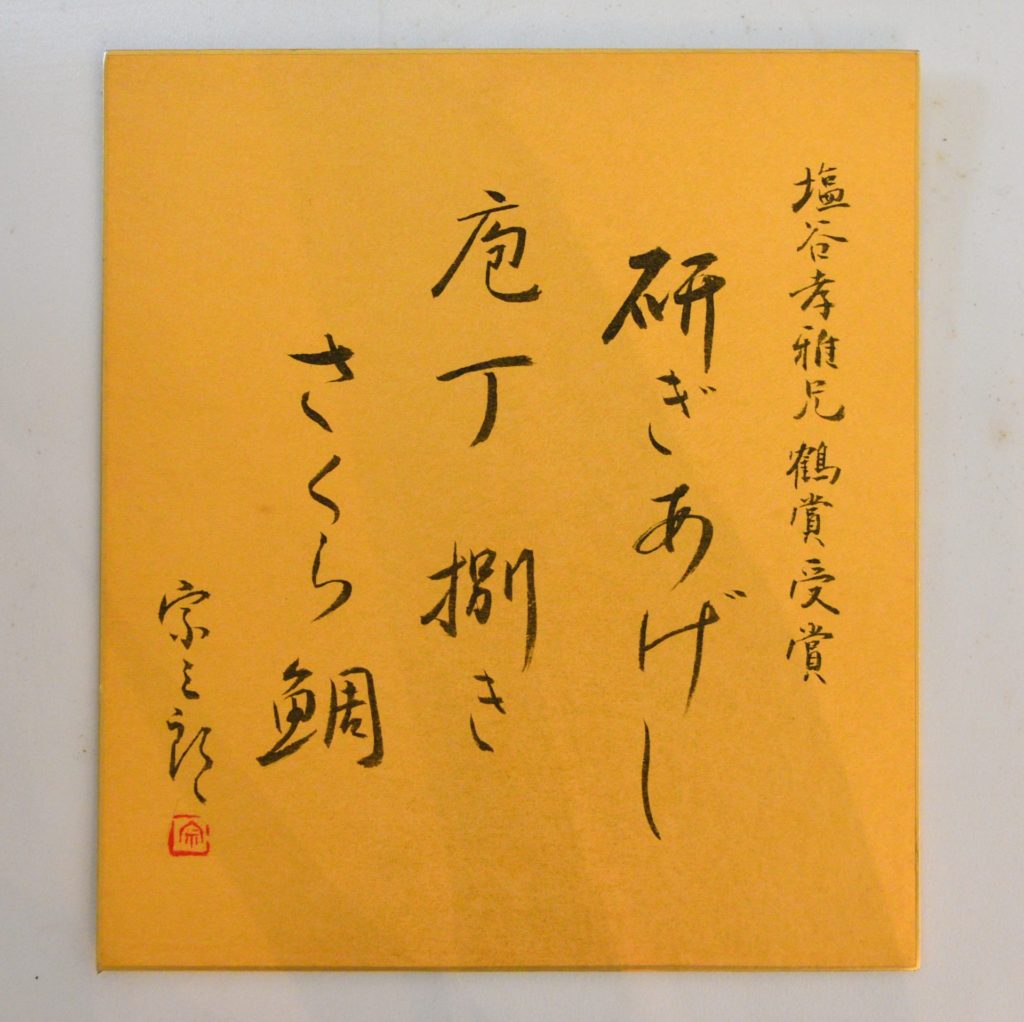 塩谷孝雅兄 鶴賞受賞
研ぎあげし
庖丁捌き
さくら鯛
宗三郎
宗